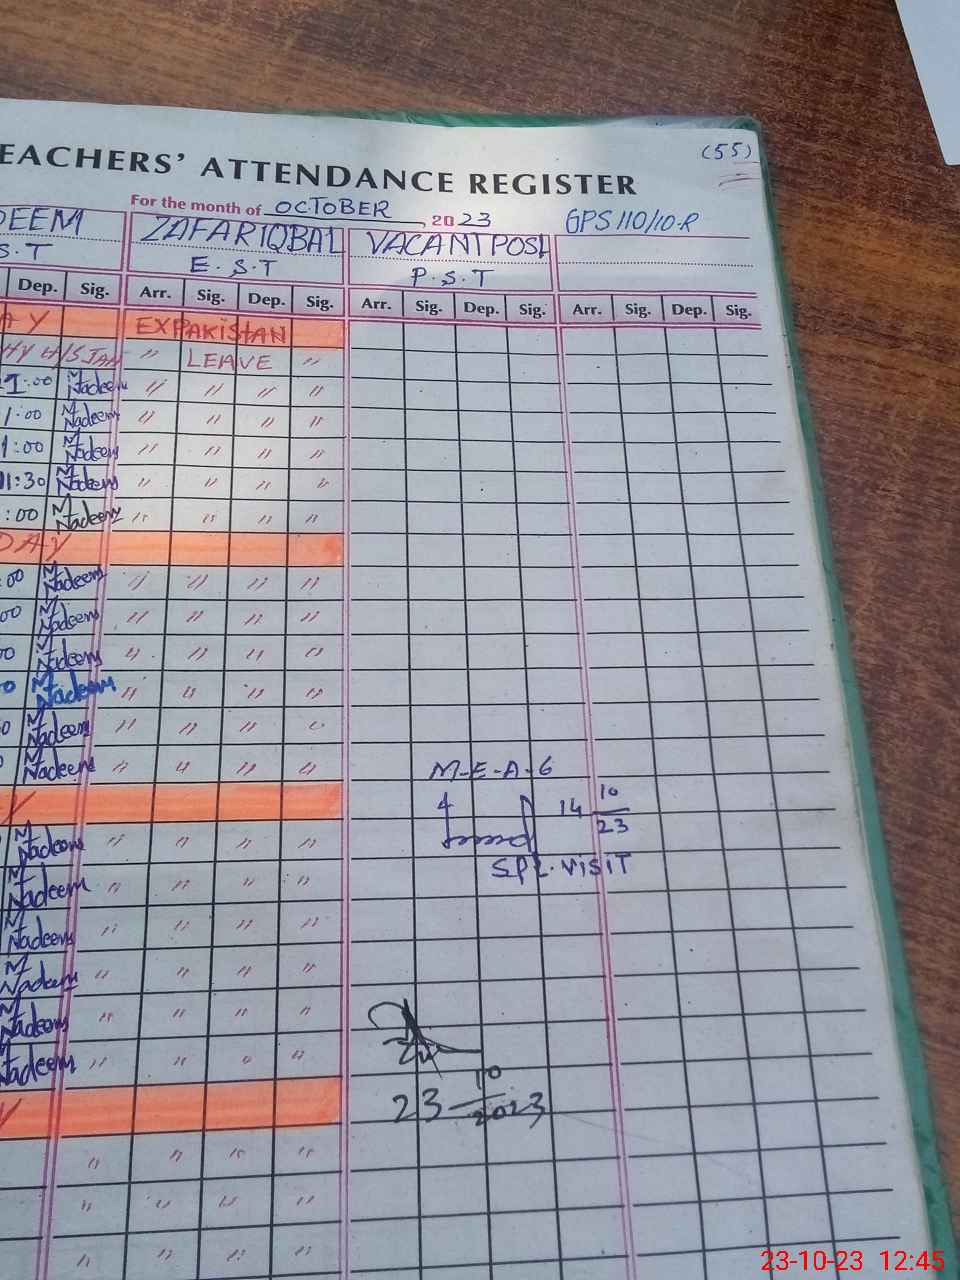 EACHERS' ATTENDANCE REGISTER
(55)
For the month of OCTOBER, 2023 GPS 110/10-R
DEEM ZAFAR IQBAL VACANT POST
S.T E.S.T P.S.T
Dep. Sig. Arr. Sig. Dep. Sig. Arr. Sig. Dep. Sig. Arr. Sig. Dep. Sig.
AY EXPAKISTAN
LEAVE "
1:00 M Nadeem " " " "
1:00 M Nadeem " " " "
1:00 M Nadeem " " " "
11:30 M Nadeem " " " "
:00 M Nadeem " " " "
DAY
:00 M Nadeem " " " "
00 M Nadeem " " " "
0 M Nadeem " " " "
0 M Nadeem " " " "
0 M Nadeem " " " "
M Nadeem " " " "
M-E-A-6
Y
14 10
23
M Nadeem " " " "
SPL. VISIT
M Nadeem " " " "
M Nadeem " " " "
M Nadeem " " " "
M Nadeem " " " "
M Nadeem " " " "
Y
23 10
2023
" " " "
" " " "
" " " "
23-10-23 12:45